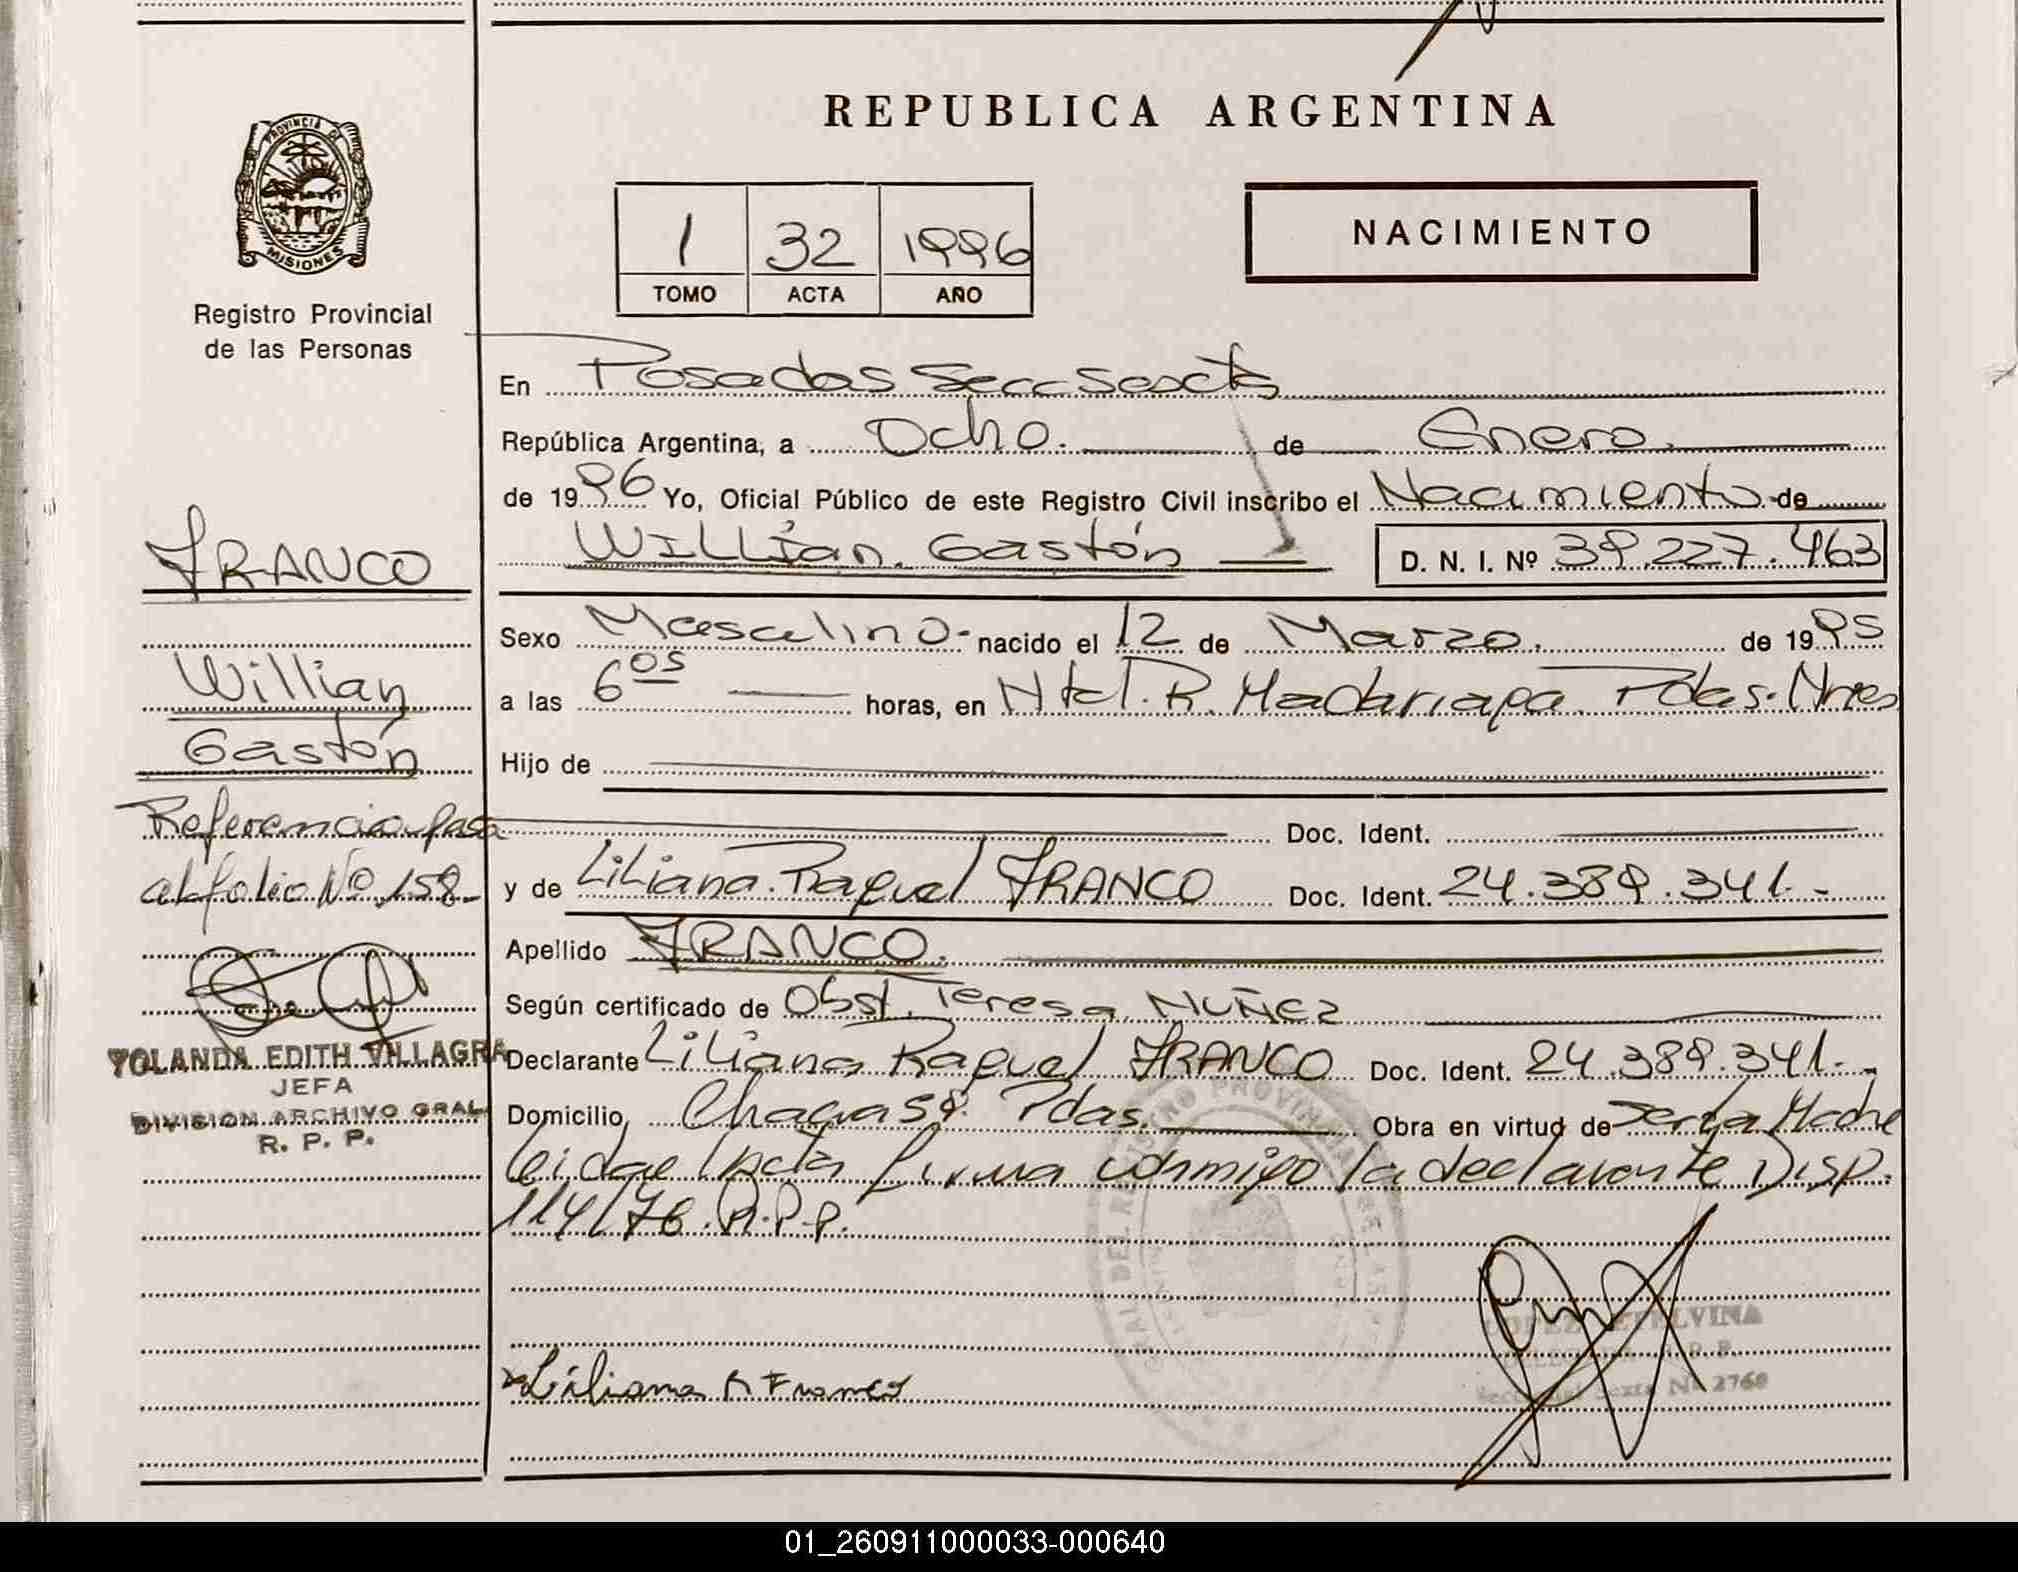 REPUBLICA ARGENTINA
PROVINCIA DE
MISIONES
Registro Provincial
de las Personas
1 32 1996
TOMO ACTA AÑO
NACIMIENTO
En Posadas Secc Sexta
República Argentina, a Ocho. de Enero.
de 1996 Yo, Oficial Público de este Registro Civil inscribo el Nacimiento de
WILLian. Gastón D. N. I. Nº 39.227.463
Sexo Masculino- nacido el 12 de Marzo. de 1995
a las 6 05 horas, en Ntal. R. Madariaga. Pdas. Mnes
Hijo de
Doc. Ident.
y de Liliana. Raquel FRANCO Doc. Ident. 24.389.341.-
Apellido FRANCO.
Según certificado de Obst. Teresa NUÑEZ
Declarante Liliana Raquel FRANCO Doc. Ident. 24.389.341.-
Domicilio Chacra 59. Pdas. Obra en virtud de Madre
leidae lActa firma conmigo la declarante Disp.
114/76. R.P.P.
Liliana R Franco
FRANCO
Willian
Gastón
Referencia pasa
al folio Nº 158-
YOLANDA EDITH VILLAGRA
JEFA
DIVISION ARCHIVO GRAL
R. P. P.
LOPEZ ETELVINA
Sexta Nº 2760
01_260911000033-000640